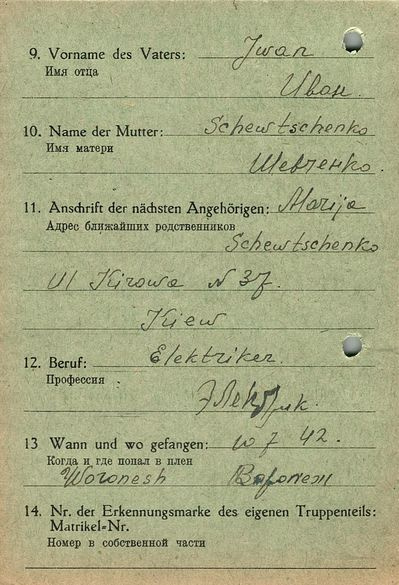 9. Vorname des Vaters: Jwan
Имя отца
Иван.
10. Name der Mutter: Schewtschenko
Имя матери
Шевченко.
11. Anschrift der nächsten Angehörigen: Marija
Адрес ближайших родственников
Schewtschenko
Ul Kirowa N 37.
Kiew
12. Beruf: Elektriker.
Профессия
Электрик.
13 Wann und wo gefangen: 7 42.
Когда и где попал в плен
Woronesh Воронеж
14. Nr. der Erkennungsmarke des eigenen Truppenteils:
Matrikel-Nr.
Номер в собственной части